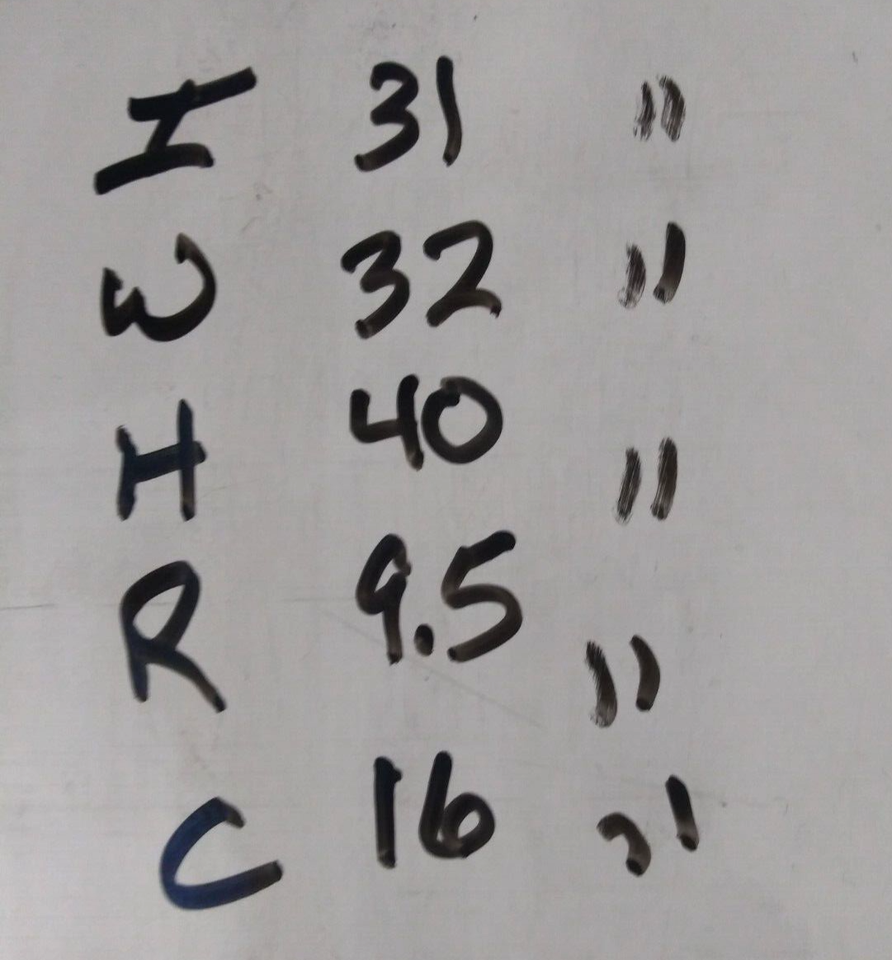 I 31 "
W 32 "
H 40 "
R 9.5 "
C 16 "